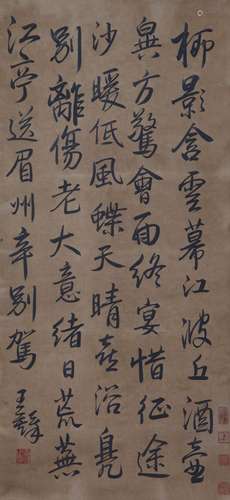 柳影含雲幕江波近酒壺
異方驚會面終宴惜征途
沙暖低風蝶天晴喜浴鳧
別離傷老大意緒日荒蕪
江亭送眉州辛別駕
王鐸